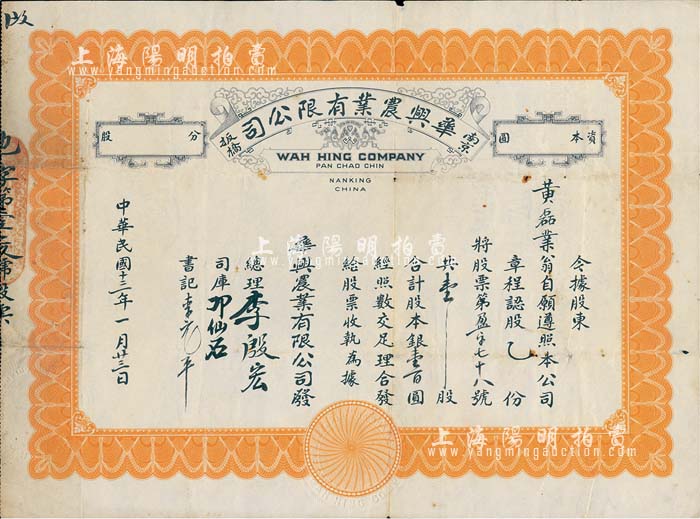 上海陽明拍賣
www.yangmingauction.com
上海陽明拍賣
www.yangmingauction.com
南京 華興農業有限公司 板橋
WAH HING COMPANY
PAN CHAO CHIN
NANKING
CHINA
資本 圓
分 股
今據股東
黃磊業翁自願遵照本公司
章程認股 份
將股票第盈字七十八號
共壹股
合計股本銀壹百圓
經照數交足理合發
給股票收執為據
華興農業有限公司發
總理李殷宏
司庫 仙石
書記李 平
中華民國十三年一月廿三日
股票
上海陽明拍賣
www.yangmingauction.com
上海陽明拍賣
www.yangmingauction.com
上海陽明拍賣
www.yangmingauction.com